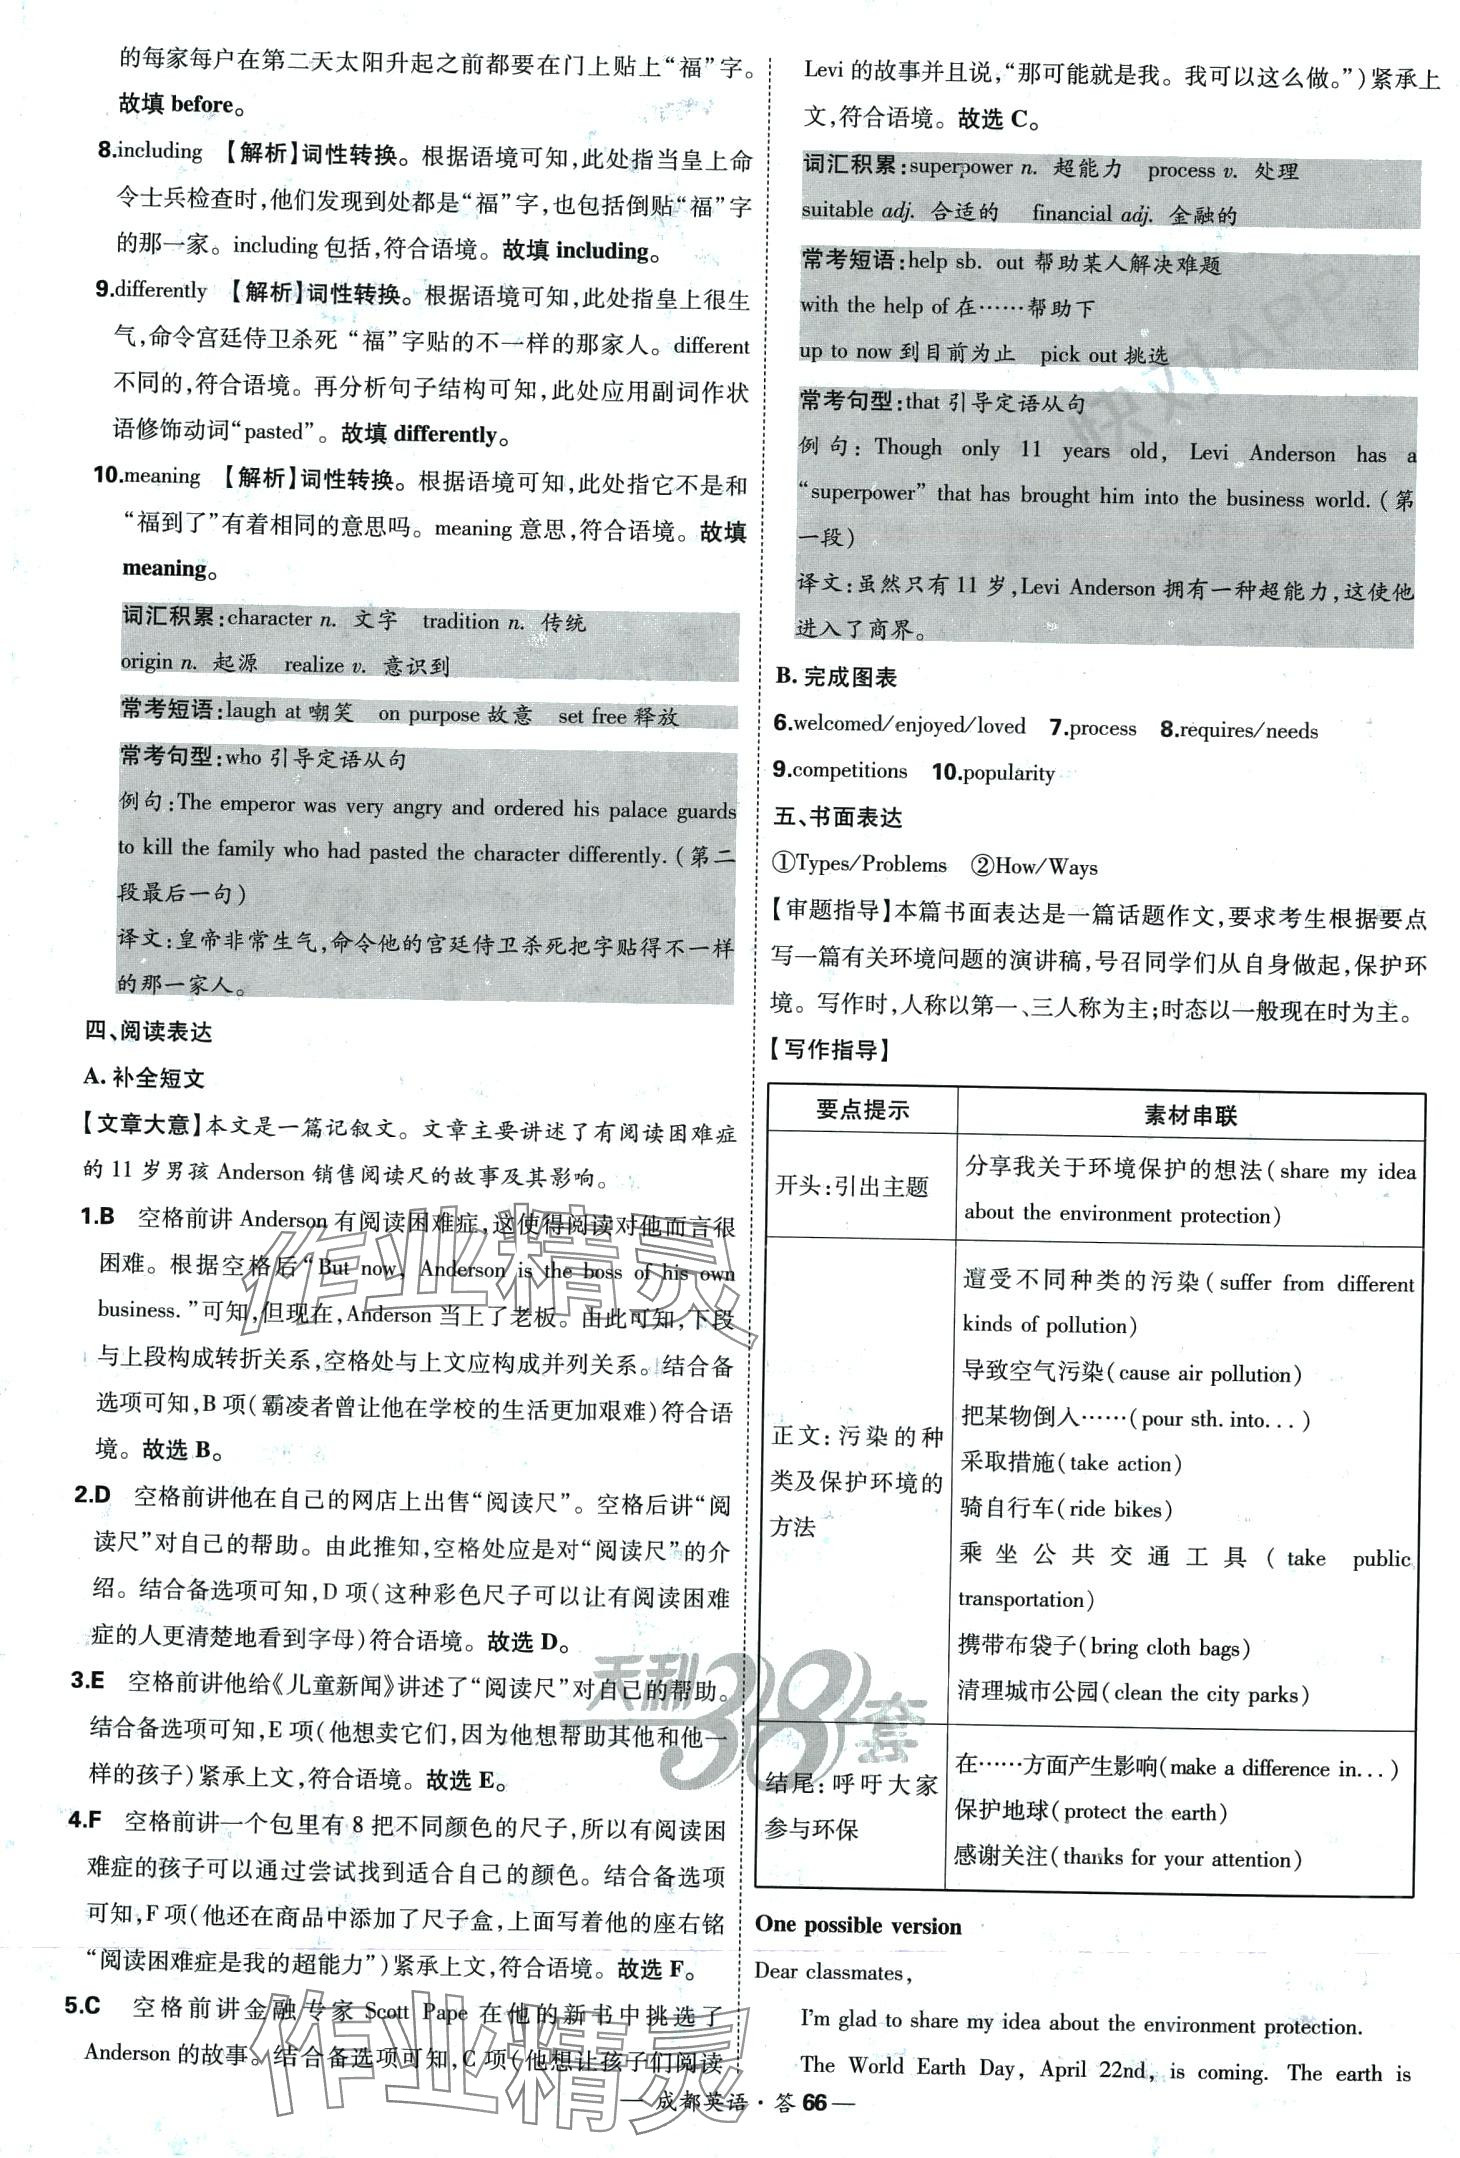 的每家每户在第二天太阳升起之前都要在门上贴上“福”字。
故填 before。
8.including 【解析】词性转换。根据语境可知,此处指当皇上命
令士兵检查时,他们发现到处都是“福”字,也包括倒贴“福”字
的那一家。including 包括,符合语境。故填 including。
9.differently 【解析】词性转换。根据语境可知,此处指皇上很生
气,命令宫廷侍卫杀死 “福”字贴的不一样的那家人。different
不同的,符合语境。再分析句子结构可知,此处应用副词作状
语修饰动词“pasted”。故填 differently。
10.meaning 【解析】词性转换。根据语境可知,此处指它不是和
“福到了”有着相同的意思吗。meaning 意思,符合语境。故填
meaning。
词汇积累:character n. 文字 tradition n. 传统
origin n. 起源 realize v. 意识到
常考短语:laugh at 嘲笑 on purpose 故意 set free 释放
常考句型:who 引导定语从句
例句:The emperor was very angry and ordered his palace guards
to kill the family who had pasted the character differently.(第二
段最后一句)
译文:皇帝非常生气,命令他的宫廷侍卫杀死把字贴得不一样
的那一家人。
四、阅读表达
A. 补全短文
【文章大意】本文是一篇记叙文。文章主要讲述了有阅读困难症
的 11 岁男孩 Anderson 销售阅读尺的故事及其影响。
1.B 空格前讲 Anderson 有阅读困难症,这使得阅读对他而言很
困难。根据空格后“But now, Anderson is the boss of his own
business.”可知,但现在,Anderson 当上了老板。由此可知,下段
与上段构成转折关系,空格处与上文应构成并列关系。结合备
选项可知,B 项(霸凌者曾让他在学校的生活更加艰难)符合语
境。故选 B。
2.D 空格前讲他在自己的网店上出售“阅读尺”。空格后讲“阅
读尺”对自己的帮助。由此推知,空格处应是对“阅读尺”的介
绍。结合备选项可知,D 项(这种彩色尺子可以让有阅读困难
症的人更清楚地看到字母)符合语境。故选 D。
3.E 空格前讲他给《儿童新闻》讲述了“阅读尺”对自己的帮助。
结合备选项可知,E 项(他想卖它们,因为他想帮助其他和他一
样的孩子)紧承上文,符合语境。故选 E。
4.F 空格前讲一个包里有 8 把不同颜色的尺子,所以有阅读困
难症的孩子可以通过尝试找到适合自己的颜色。结合备选项
可知,F 项(他还在商品中添加了尺子盒,上面写着他的座右铭
“阅读困难症是我的超能力”)紧承上文,符合语境。故选 F。
5.C 空格前讲金融专家 Scott Pape 在他的新书中挑选了
Anderson 的故事。结合备选项可知,C 项(他想让孩子们阅读
Levi 的故事并且说,“那可能就是我。我可以这么做。”)紧承上
文,符合语境。故选 C。
词汇积累:superpower n. 超能力 process v. 处理
suitable adj. 合适的 financial adj. 金融的
常考短语:help sb. out 帮助某人解决难题
with the help of 在……帮助下
up to now 到目前为止 pick out 挑选
常考句型:that 引导定语从句
例句:Though only 11 years old, Levi Anderson has a
“superpower” that has brought him into the business world.(第
一段)
译文:虽然只有 11 岁,Levi Anderson 拥有一种超能力,这使他
进入了商界。
B. 完成图表
6.welcomed/enjoyed/loved 7.process 8.requires/needs
9.competitions 10.popularity
五、书面表达
①Types/Problems ②How/Ways
【审题指导】本篇书面表达是一篇话题作文,要求考生根据要点
写一篇有关环境问题的演讲稿,号召同学们从自身做起,保护环
境。写作时,人称以第一、三人称为主;时态以一般现在时为主。
【写作指导】
要点提示 素材串联
开头:引出主题
分享我关于环境保护的想法(share my idea
about the environment protection)
正文:污染的种
类及保护环境的
方法
遭受不同种类的污染(suffer from different
kinds of pollution)
导致空气污染(cause air pollution)
把某物倒入……(pour sth. into...)
采取措施(take action)
骑自行车(ride bikes)
乘坐公共交通工具(take public
transportation)
携带布袋子(bring cloth bags)
清理城市公园(clean the city parks)
结尾:呼吁大家
参与环保
在……方面产生影响(make a difference in...)
保护地球(protect the earth)
感谢关注(thanks for your attention)
One possible version
Dear classmates,
I'm glad to share my idea about the environment protection.
The World Earth Day, April 22nd, is coming. The earth is
— 成都英语·答 66 —
作业精灵
天利38套
作业精灵
快对APP